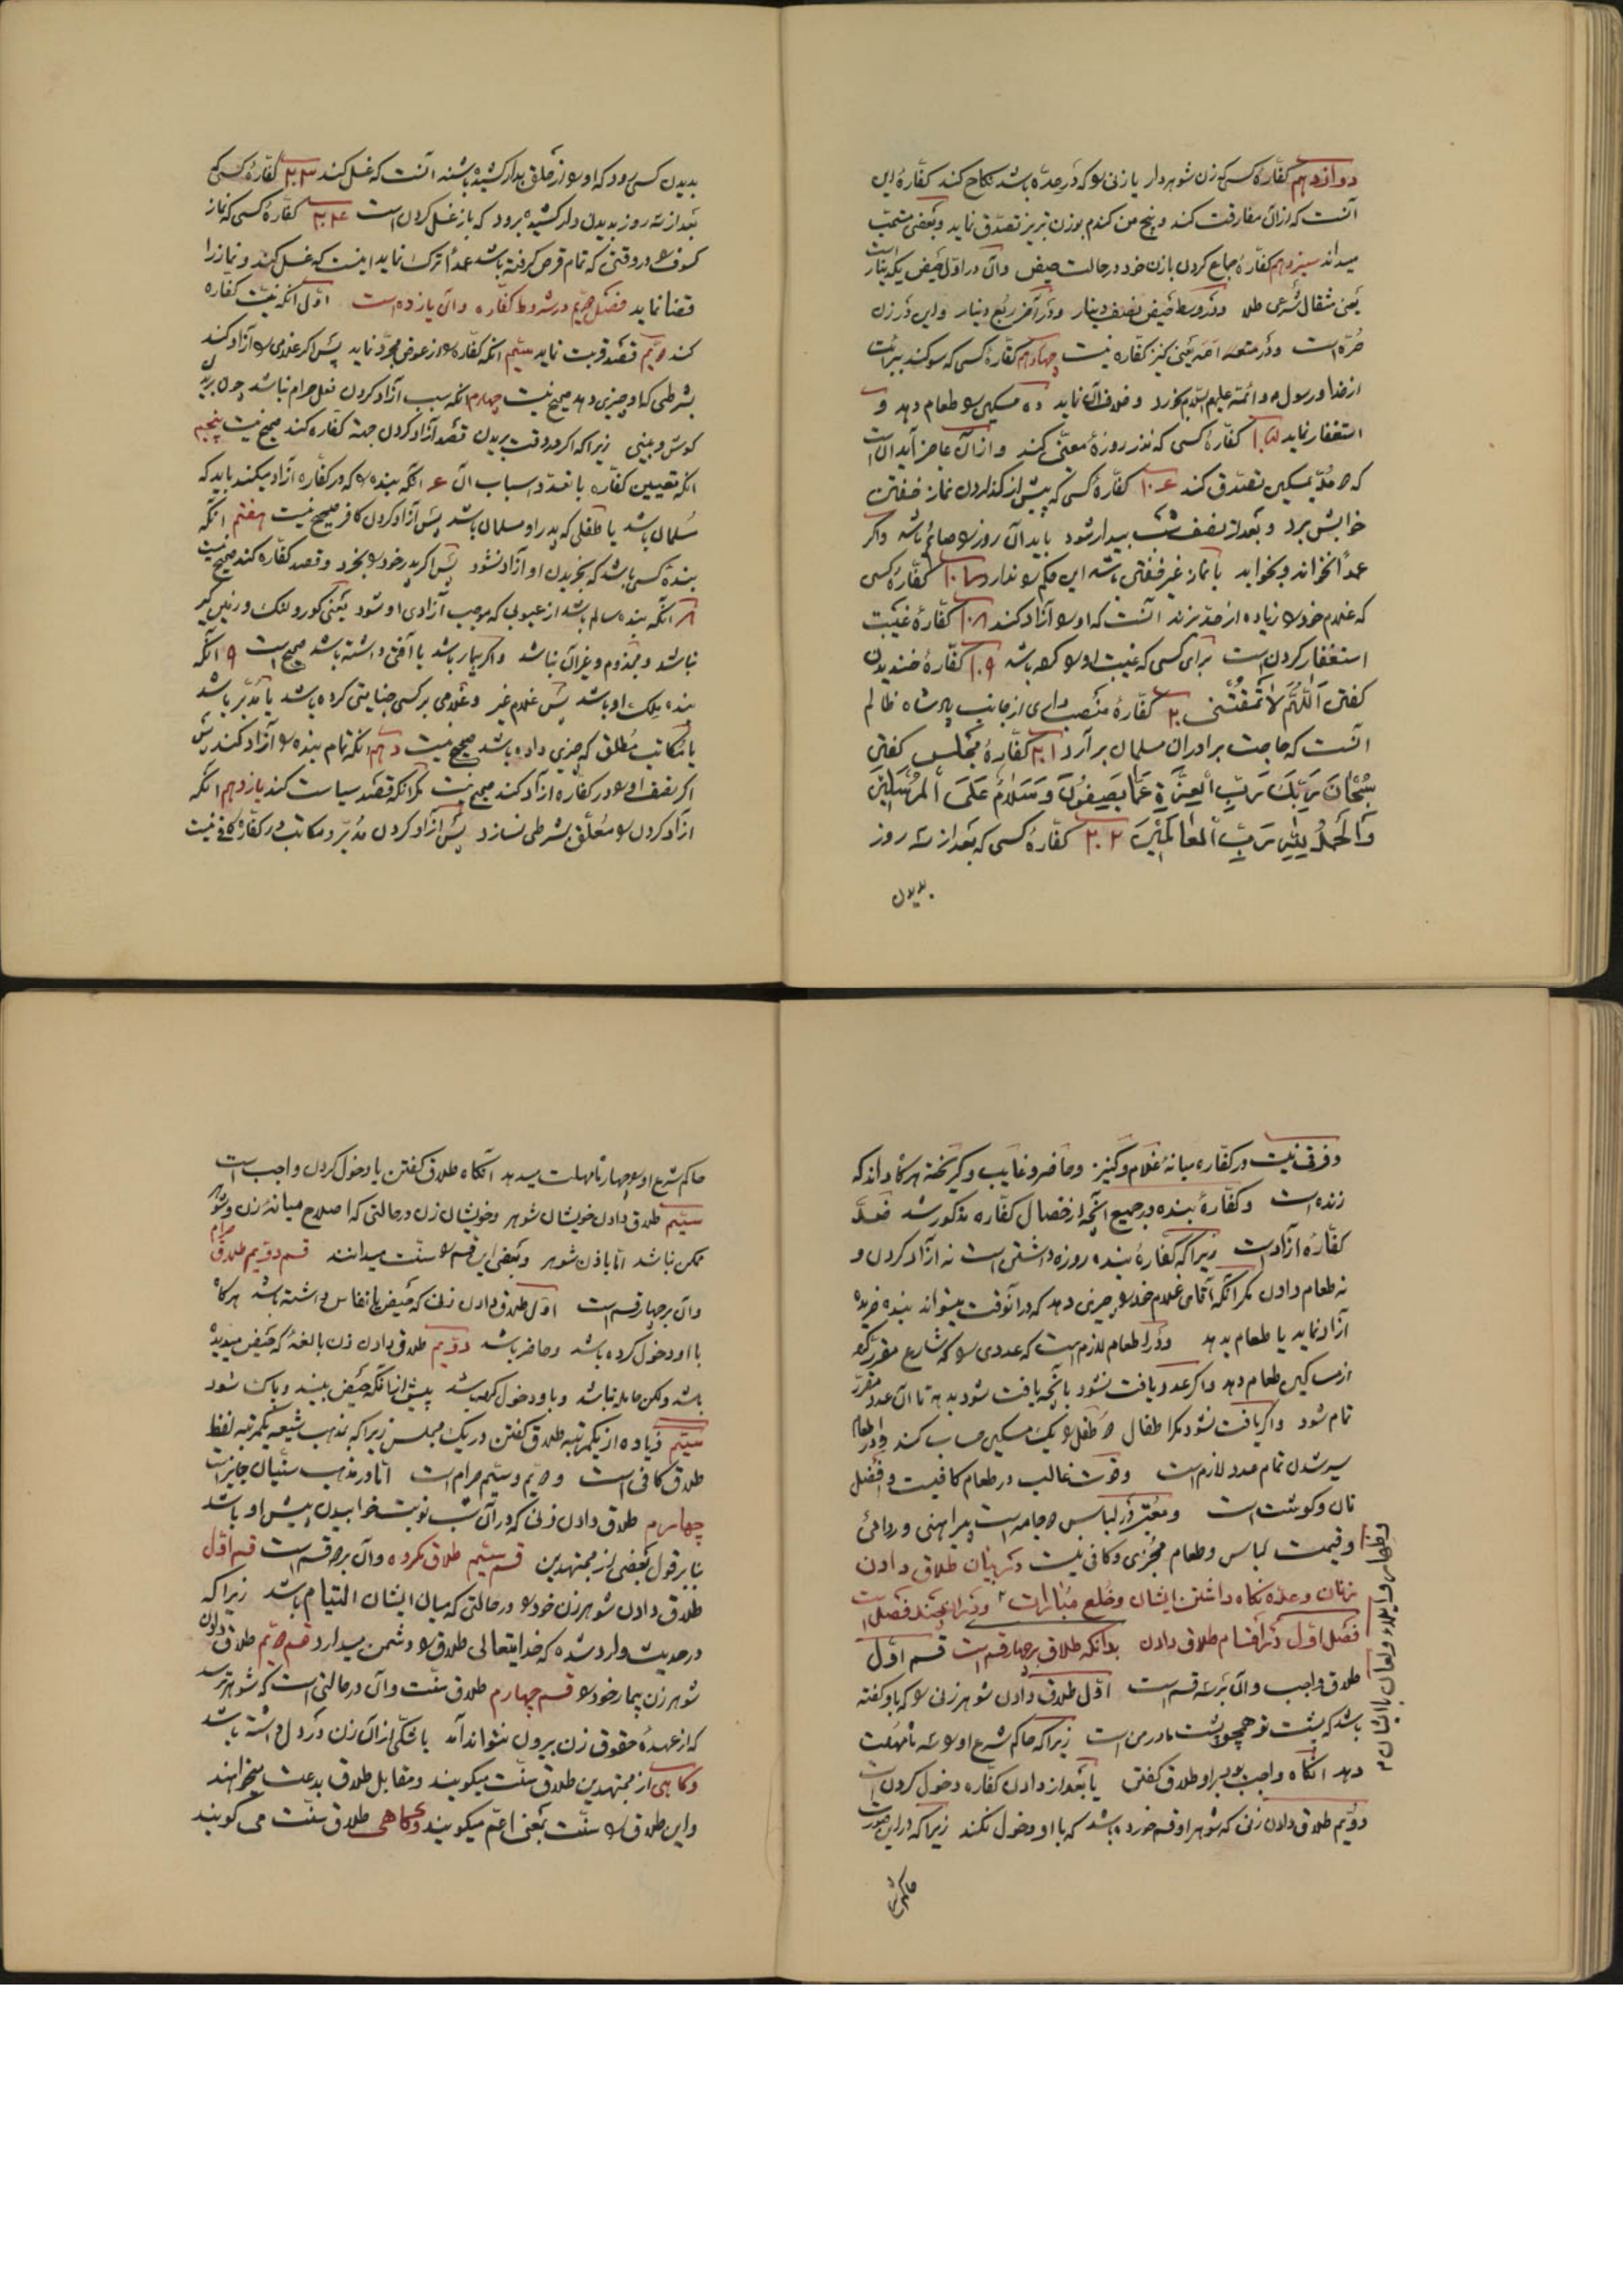 دوازدهم کفّارهٔ کسی که زن شوهردار یا زنی را که در عدّه باشد نکاح کند کفّارهٔ این
آنست که از ان مفارقت کند و پنج من کندم بوزن تبریز تصدّق نماید و بعضی مستحب
میداند سیزدهم کفّارهٔ جماع کردن با زن خود در حالت حیض وآن در اوّل حیض یکدینار است
یعنی مثقال شرعی طلا ودر وسط حیض نصف دینار ودر آخر ربع دینار واین در زن
حرّه است ودر متعه امّه یعنی کنیز کفّاره نیست چهاردهم کفّارهٔ کسی که سوکند ببرائت
از خدا ورسول وائمّه علیهم السّلام بخورد وخلاف آن نماید ده مسکین را طعام دهد و
استغفار نماید کفّارهٔ کسی که نذر روزهٔ معیّنی کند واز آن عاجز آید آن است
که مدّ بمسکین تصدّق کند کفّارهٔ کسی که پیش از کذاردن نماز خفتن
خوابش برد وبعد از نصف شب بیدار شود باید آن روز را صائم باشد واکر
عمداً نخواند وبخوابد یا نماز غیر خفتن باشد این حکم را ندارد کفّارهٔ کسی
که غلام خود را زیاده از حدّ بزند آنست که او را آزاد کند کفّارهٔ غیبت
استغفار کردن است برای کسی که غیبت او را کرده باشد کفّارهٔ خندیدن
کفتن اَللّهُمَّ لاٰ تَمْقُتْنی کفّارهٔ منصب داری از جانب پادشاه ظالم
آنست که حاجت برادران مسلمان برآرد کفّارهٔ مجلس کفتن
سُبْحٰانَ رَبِّكَ رَبِّ الْعِزَّةِ عَمّٰا یَصِفُونَ وَسَلٰامٌ عَلَی الْمُرْسَلینَ
وَالْحَمْدُ لِلّٰهِ رَبِّ الْعٰالَمینَ کفّارهٔ کسی که بعد از سه روز
بدیدن
بدیدن کسی رود که او را از حلق بدار کشیده باشند آنست که غسل کند کفّارهٔ کسی که
بعد از سه روز بدیدن دار کشیده برود که باز غسل کردن است کفّارهٔ کسی که نماز
کسوف را در وقتی که تمام قرص کرفته باشد عمداً ترک نماید اینست که غسل کند ونماز را
قضا نماید فصل دویّم در شروط کفّاره وآن یازده است اوّل آنکه نیّت کفاره
کند دویّم قصد قربت نماید سیّم انکه کفّاره را از عوض مجرّد نماید پس اکر غلامی را آزاد کند
بشرطی که او چیزی دهد صحیح نیست چهارم انکه سبب آزاد کردن فعل حرام نباشد چون بریدن
کوش وبینی زیرا که اکر در وقت بریدن قصد آزاد کردن جهة کفّاره کند صحیح نیست پنجم
انکه تعیین کفّاره با تعدّد اسباب آن انکه بنده را که در کفّاره آزاد میکند باید که
مسلمان باشد یا طفلی که پدر او مسلمان باشد پس آزاد کردن کافر صحیح نیست هفتم انکه
بندهٔ کسی باشد که بخریدن او آزاد نشود پس اکر پدر خود را بخرد وقصد کفّاره کند صحیح نیست
انکه بنده سالم باشد از عیوبی که موجب آزادی او شود یعنی کور ولنک وزمین کیر
نباشد ومجذوم وغیر آن نباشد واکر بیمار باشد یا آفتی داشته باشد صحیح است انکه
بنده ملک او باشد پس غلام غیر وغلامی بر کسی جنایتی کرده باشد یا مدبّر باشد
یا مکاتب مطلق که چیزی داده باشد صحیح نیست دهم انکه تمام بنده را آزاد کند پس
اکر نصف او را در کفّاره آزاد کند صحیح نیست مکر انکه قصد سیاست کند یازدهم انکه
آزاد کردن را معلّق بشرطی نسازد پس آزاد کردن مدبّر ومکاتب در کفّاره کافی نیست
وفرقی نیست در کفّاره میانهٔ غلام وکنیز وحاضر وغایب وکریخته هرکاه داند که
زنده است وکفّارهٔ بنده در جمیع آنچه از خصال کفّاره مذکور شد
کفّارهٔ آزاد است زیرا که کفارهٔ بنده روزه داشتن است نه آزاد کردن و
نه طعام دادن مکر انکه آقای غلام خود را چیزی دهد که در آنوقت میتواند بنده خریده
آزاد نماید یا طعام بدهد ودر اطعام لازم است که عددی را که شارع مقرّر کرده
از مساکین طعام دهد واکر عدد یافت نشود بآنچه یافت شود بدهد تا آن عدد مقرّر
تمام شود واکر یافت نشود مکر اطفال دو طفل را یک مسکین حساب کند ودر اطعام
سیر شدن تمام عدد لازم است وقوت غالب در طعام کافیست وافضل
نان وکوشت است ومعتبر در لباس دو جامه است پیراهنی وردائی
وقیمت لباس وطعام مجزی وکافی نیست در بیان طلاق دادن
زنان وعدّه نکاه داشتن ایشان وخلع مبارات ودر آن چند فصل است
فصل اوّل در اقسام طلاق دادن بدانکه طلاق بر چهار قسم است قسم اوّل
طلاق واجب وآن بر سه قسم است اوّل طلاق دادن شوهر زنی را که باو کفته
باشد که پشت تو همچو پشت مادر من است زیرا که حاکم شرع او را سه ماه مهلت
دهد انکاه واجب بود بر او طلاق کفتن یا بعد از دادن کفّاره دخول کردن است
دویّم طلاق دادن زنی که شوهر او قسم خورده باشد که با او دخول نکند زیرا که در این صورت
حاکم شرع
وظهار وایلاء ولعان با ایشان
حاکم شرع او را چهار ماه مهلت میدهد انکاه طلاق کفتن یا دخول کردن واجب است
سیّم طلاق دادن خویشان شوهر وخویشان زن در حالتی که اصلاح میانهٔ زن وشوهر
ممکن نباشد امّا باذن شوهر وبعضی این قسم را سنّت میدانند قسم دویّم طلاق حرام
وآن بر چهار قسم است اوّل طلاق دادن زنی که حیض یا نفاس داشته باشد هرکاه
با او دخول کرده باشد وحاضر باشد دویّم طلاق دادن زن بالغهٔ که حیض میدیده
باشد ولکن حامله نباشد وبا او دخول کرده باشد پیش از انکه حیض بیند وپاک شود
سیّم زیاده از یکمرتبه طلاق کفتن در یک مجلس زیرا که بمذهب شیعه یکمرتبه لفظ
طلاق کافی است ودویّم وسیّم حرام است امّا در مذهب سنّیان جایز است
چهارم طلاق دادن زنی که در آن شب نوبت خوابیدن پیش او باشد
بنابر قول بعضی از مجتهدین قسم سیّم طلاق مکروه وآن بر دو قسم است قسم اوّل
طلاق دادن شوهر زن خود را در حالتی که میان ایشان التیام باشد زیرا که
در حدیث وارد شده که خدایتعالی طلاق را دشمن میدارد قسم دویّم طلاق دادن
شوهر زن بیمار خود را قسم چهارم طلاق سنّت وآن در حالتی است که شوهر ترسد
که از عهدهٔ حقوق زن بیرون نتواند آمد یا شکّی از آن زن در دل داشته باشد
وکاهی از مجتهدین طلاق سنّت میکویند ومقابل طلاق بدعت میخواهند
واین طلاق را سنّت بمعنی اعمّ میکویند وکاهی طلاق سنّت می کویند